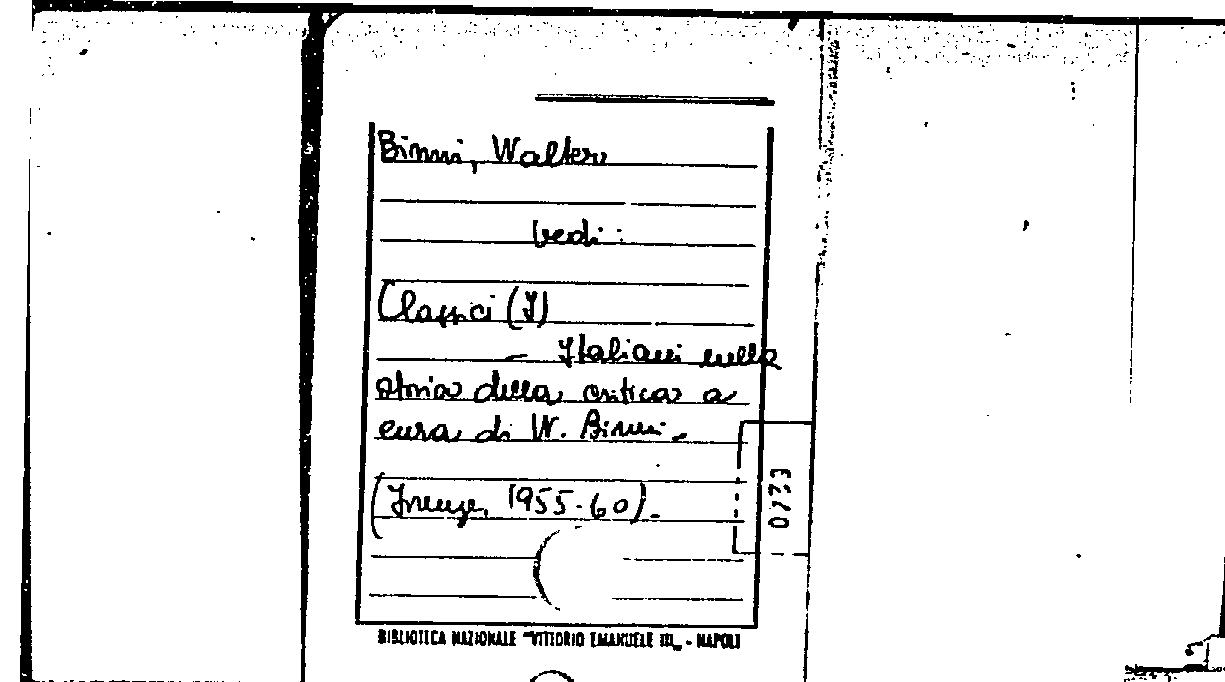 Binni, Walter
vedi:
Classici (I)
- Italiani nella
storia della critica a
cura di W. Binni.-
(Firenze, 1955-60).-
0223
BIBLIOTECA NAZIONALE "VITTORIO EMANUELE III„ - NAPOLI